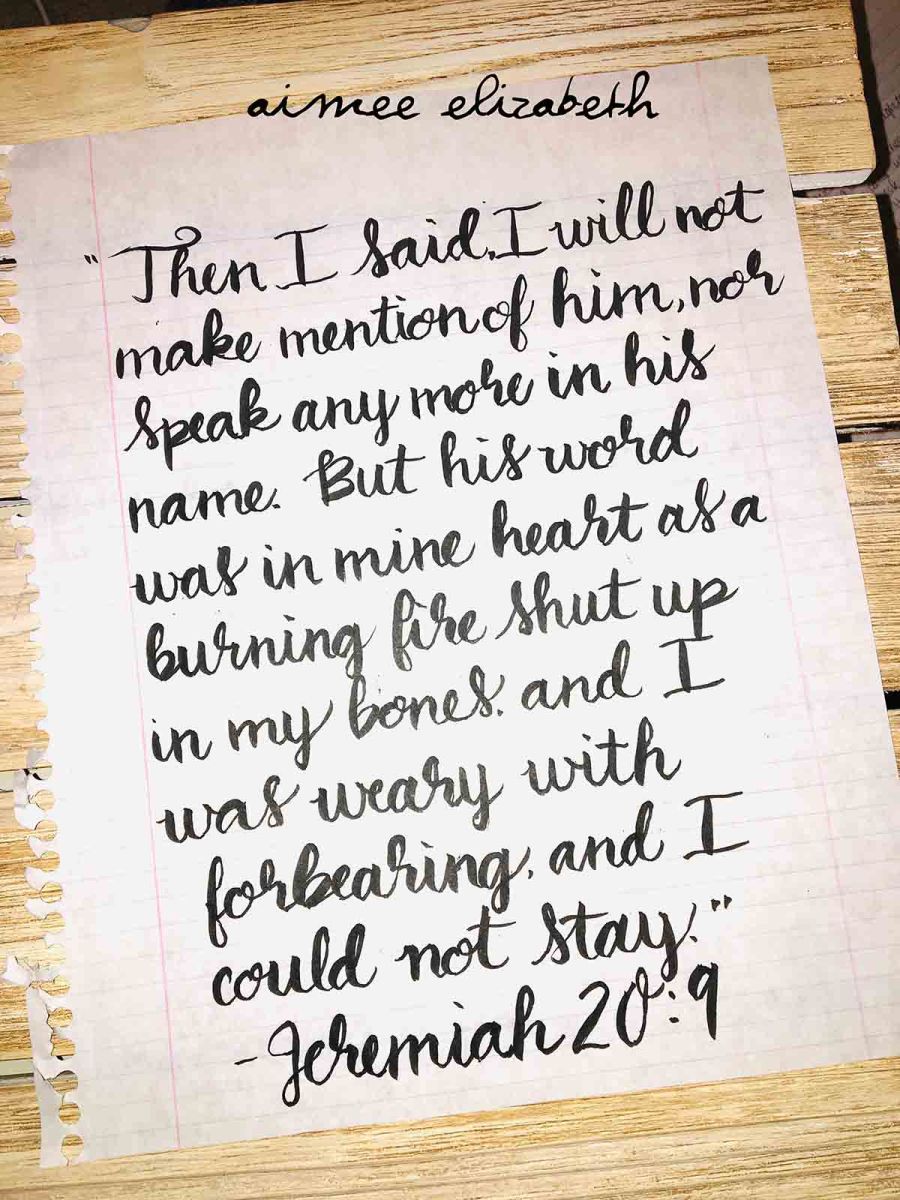 aimee elizabeth
"Then I said, I will not
make mention of him, nor
speak any more in his
name. But his word
was in mine heart as a
burning fire shut up
in my bones, and I
was weary with
forbearing, and I
could not stay."
-Jeremiah 20:9